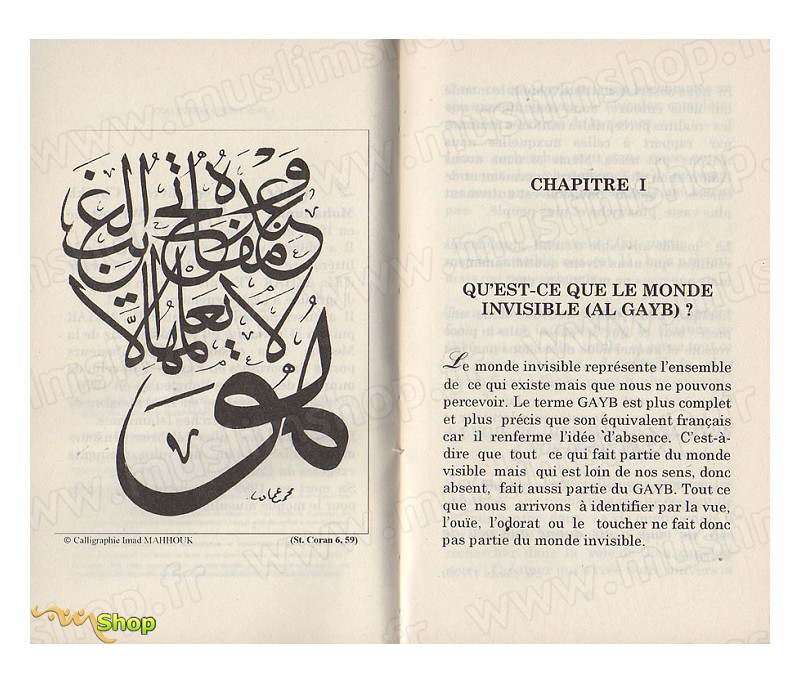 وعنده مفاتح الغيب
لا يعلمها إلا
هو
© Calligraphie Imad MAHHOUK
(St. Coran 6, 59)
CHAPITRE I
QU'EST-CE QUE LE MONDE
INVISIBLE (AL GAYB) ?
Le monde invisible représente l'ensemble
de ce qui existe mais que nous ne pouvons
percevoir. Le terme GAYB est plus complet
et plus précis que son équivalent français
car il renferme l'idée d'absence. C'est-à-
dire que tout ce qui fait partie du monde
visible mais qui est loin de nos sens, donc
absent, fait aussi partie du GAYB. Tout ce
que nous arrivons à identifier par la vue,
l'ouïe, l'odorat ou le toucher ne fait donc
pas partie du monde invisible.
www.muslimshop.fr
Shop